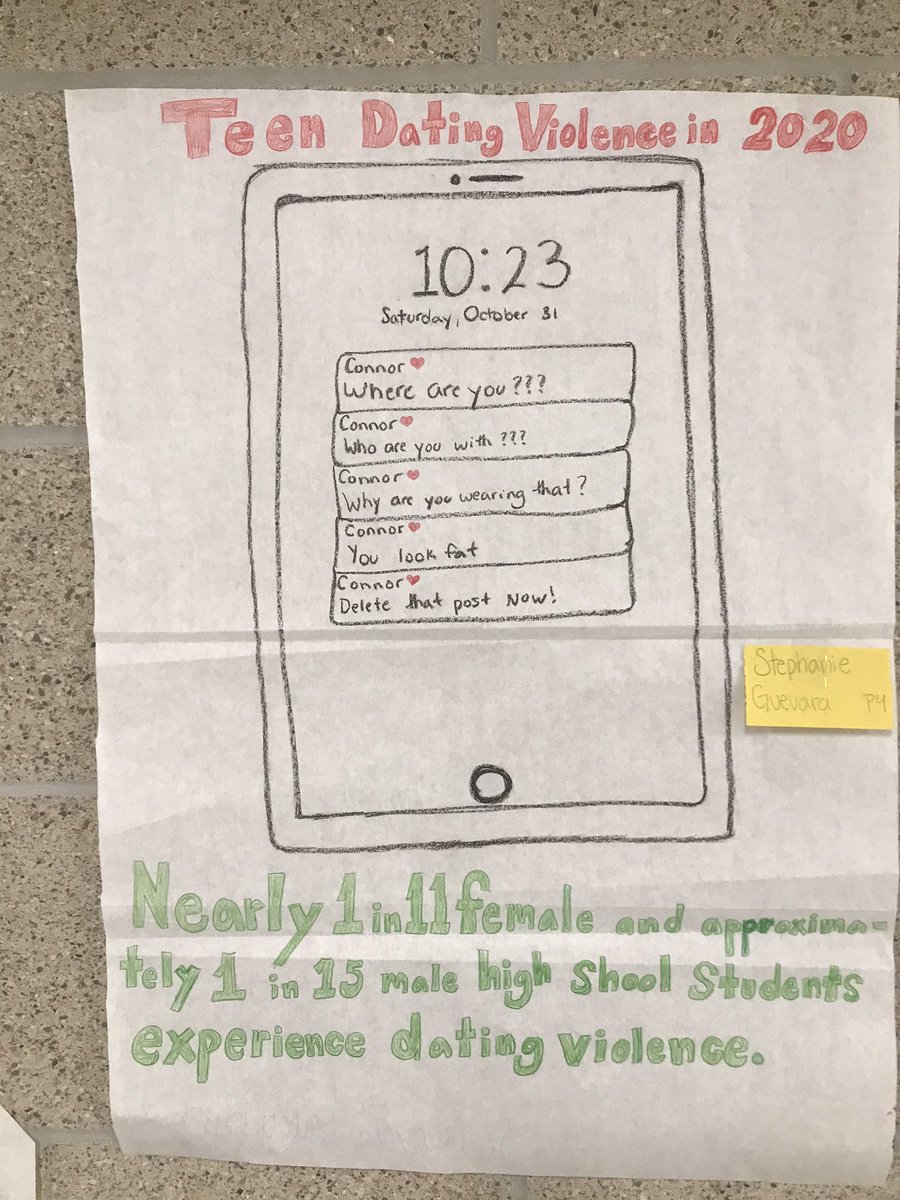 Teen Dating Violence in 2020
10:23
Saturday, October 31
Connor
Where are you???
Connor
Who are you with???
Connor
Why are you wearing that?
Connor
You look fat
Connor
Delete that post NOW!
Stephanie
Guevara P4
Nearly 1 in 11 female and approxima-
tely 1 in 15 male high Shool Students
experience dating violence.